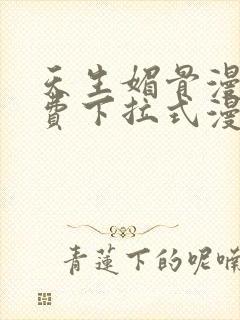 天生媚骨漫
费下拉式漫
青莲下的呢喃